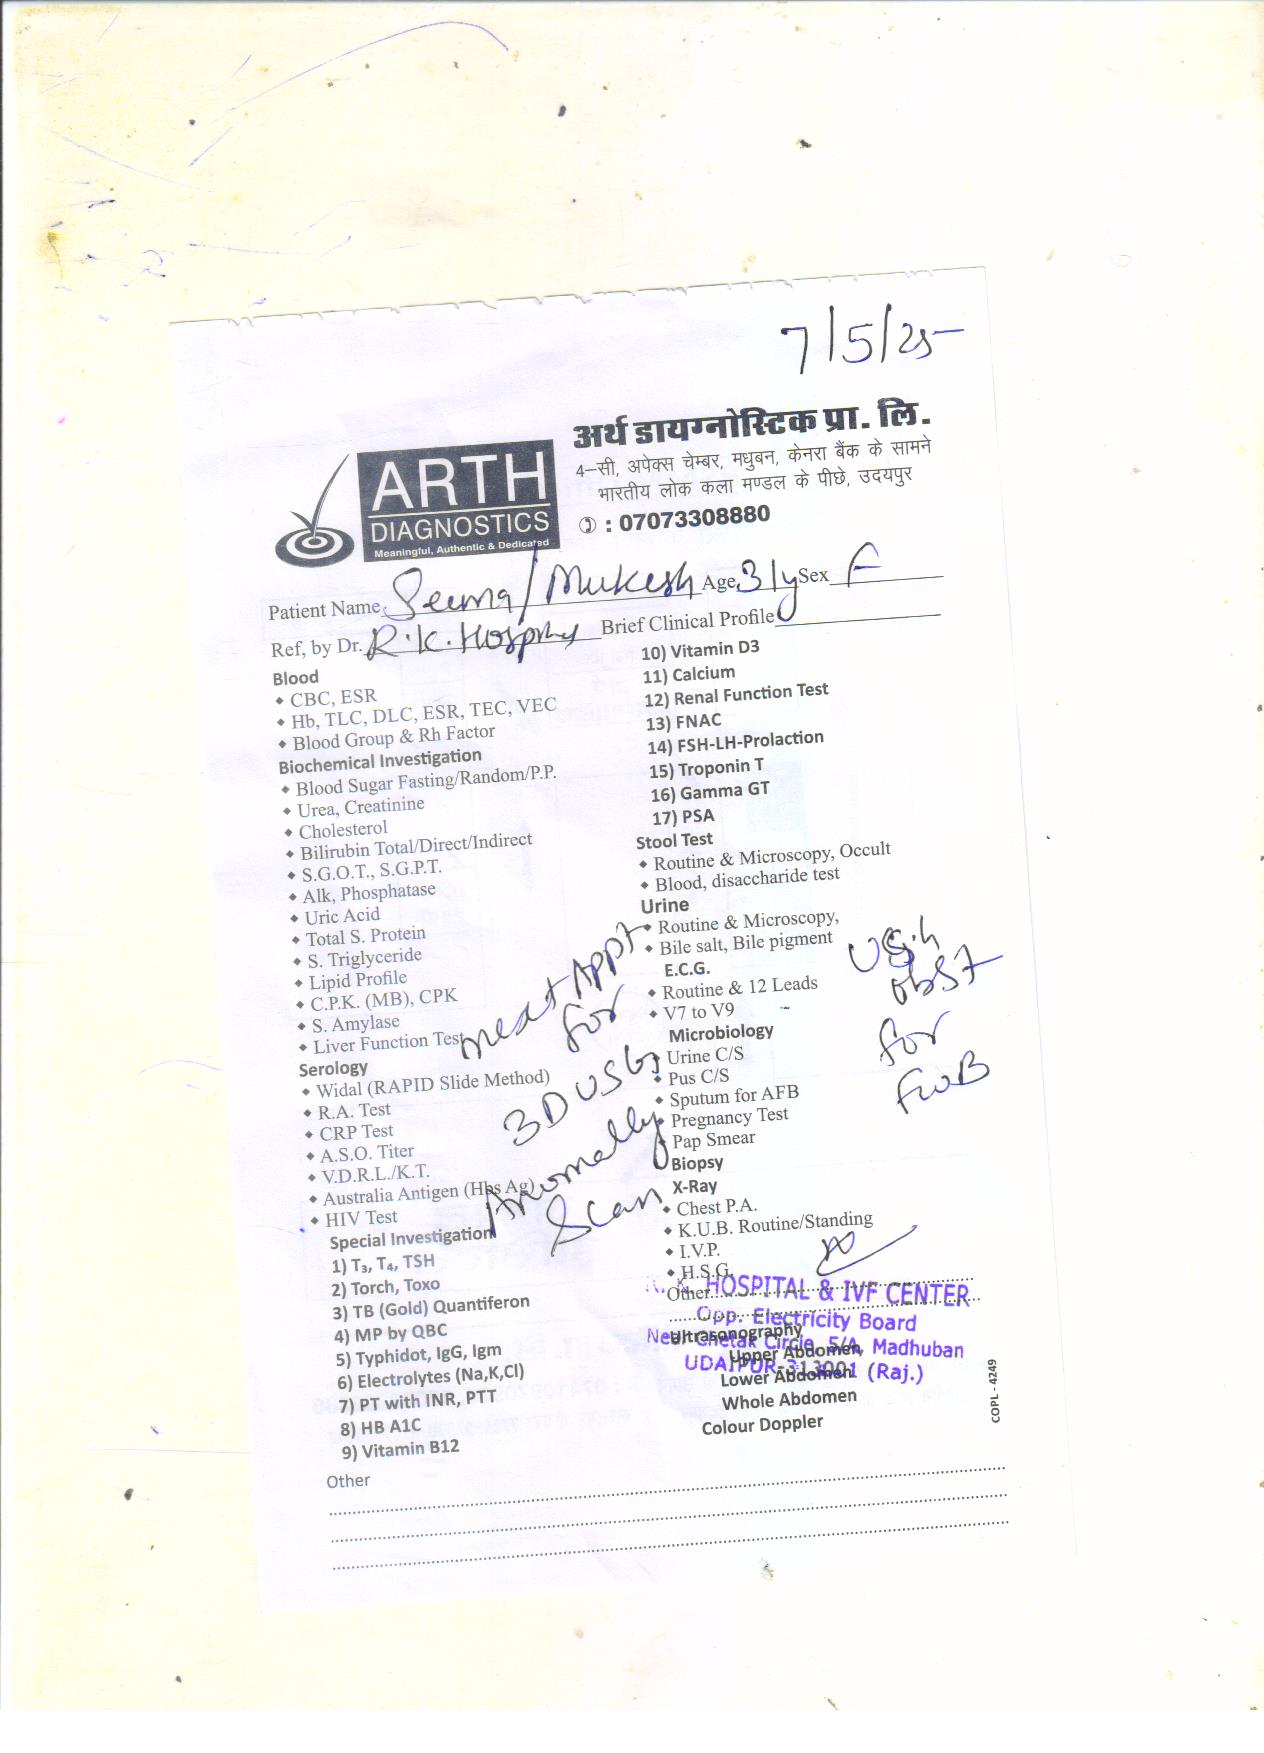 7/5/25
अर्थ डायग्नोस्टिक प्रा. लि.
4-सी, अपेक्स चेम्बर, मधुबन, केनरा बैंक के सामने
भारतीय लोक कला मण्डल के पीछे, उदयपुर
: 07073308880
ARTH
DIAGNOSTICS
Meaningful, Authentic & Dedicated
Patient Name Seema/Mukesh Age 31y Sex F
Ref, by Dr. R.K. Brief Clinical Profile
Blood
CBC, ESR
Hb, TLC, DLC, ESR, TEC, VEC
Blood Group & Rh Factor
Biochemical Investigation
Blood Sugar Fasting/Random/P.P.
Urea, Creatinine
Cholesterol
Bilirubin Total/Direct/Indirect
S.G.O.T., S.G.P.T.
Alk, Phosphatase
Uric Acid
Total S. Protein
S. Triglyceride
Lipid Profile
C.P.K. (MB), CPK
S. Amylase
Liver Function Test
Serology
Widal (RAPID Slide Method)
R.A. Test
CRP Test
A.S.O. Titer
V.D.R.L./K.T.
Australia Antigen (Hbs Ag)
HIV Test
Special Investigation
1) T₃, T₄, TSH
2) Torch, Toxo
3) TB (Gold) Quantiferon
4) MP by QBC
5) Typhidot, IgG, Igm
6) Electrolytes (Na,K,Cl)
7) PT with INR, PTT
8) HB A1C
9) Vitamin B12
10) Vitamin D3
11) Calcium
12) Renal Function Test
13) FNAC
14) FSH-LH-Prolaction
15) Troponin T
16) Gamma GT
17) PSA
Stool Test
Routine & Microscopy, Occult
Blood, disaccharide test
Urine
Routine & Microscopy,
Bile salt, Bile pigment
E.C.G.
Routine & 12 Leads
V7 to V9
Microbiology
Urine C/S
Pus C/S
Sputum for AFB
Pregnancy Test
Pap Smear
Biopsy
X-Ray
Chest P.A.
K.U.B. Routine/Standing
I.V.P.
H.S.G.
Other
Ultrasonography
Upper Abdomen
Lower Abdomen
Whole Abdomen
Colour Doppler
next APPT
for
3D USG
Anomally
Scan
USG
obst
for
FWB
HOSPITAL & IVF CENTER
Opp. Electricity Board
Near Chetak Circle, 5/A, Madhuban
UDAIPUR-313001 (Raj.)
COPL - 4249
Other